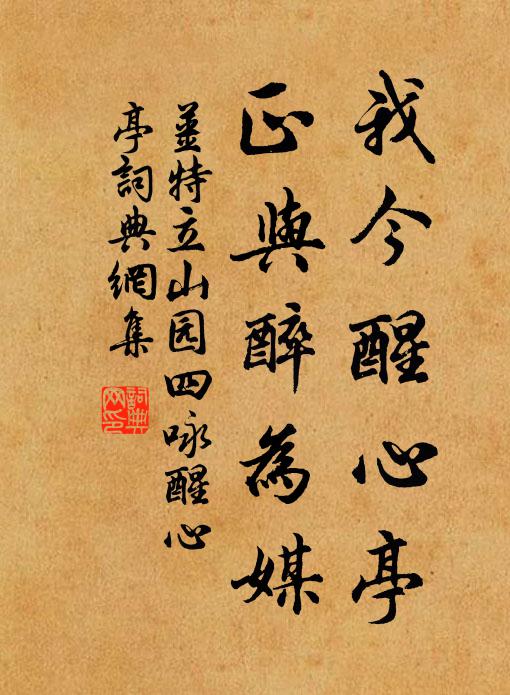 我今醒心亭
正與醉為媒
姜特立山园四咏醒心
亭詞典網集
詞典网印